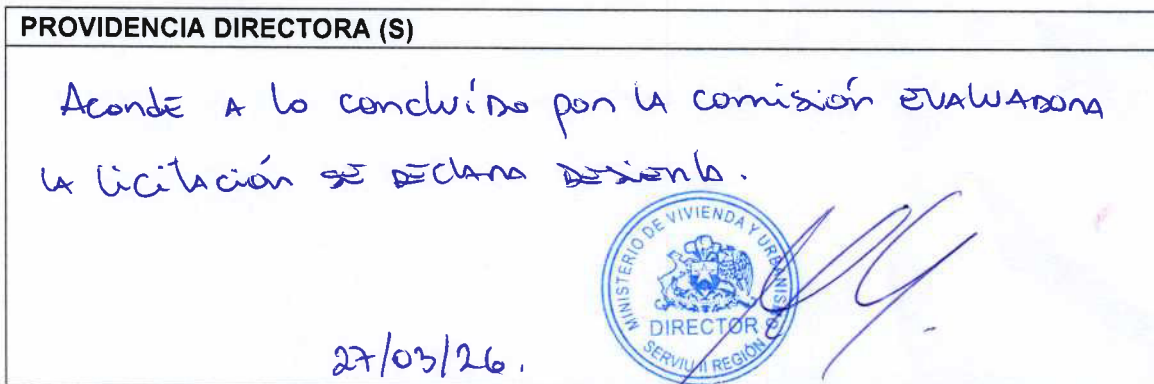 PROVIDENCIA DIRECTORA (S)
Acorde A lo concluido por la comisión EVALUADORA
LA licitación SE DECLARA DESIERTA.
MINISTERIO DE VIVIENDA Y URBANISMO
DIRECTOR
SERVIU II REGIÓN
27/03/26.